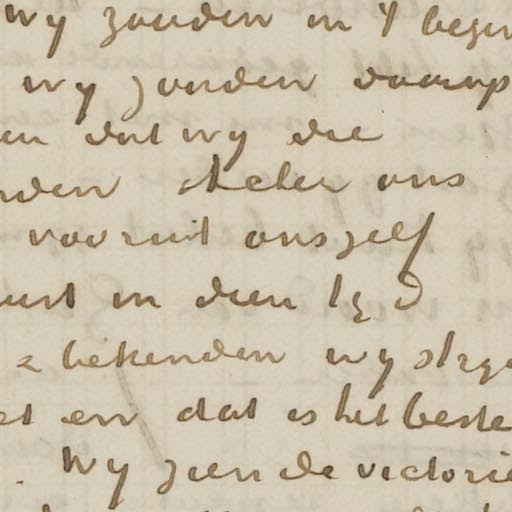 wy zouden in 't begin
wy zouden daarop
en dat wy die
den achter ons
vooruit onszelf
rust in dien tyd
& bekenden wy stryd
et en dat is het beste
. Wy zien de victorie